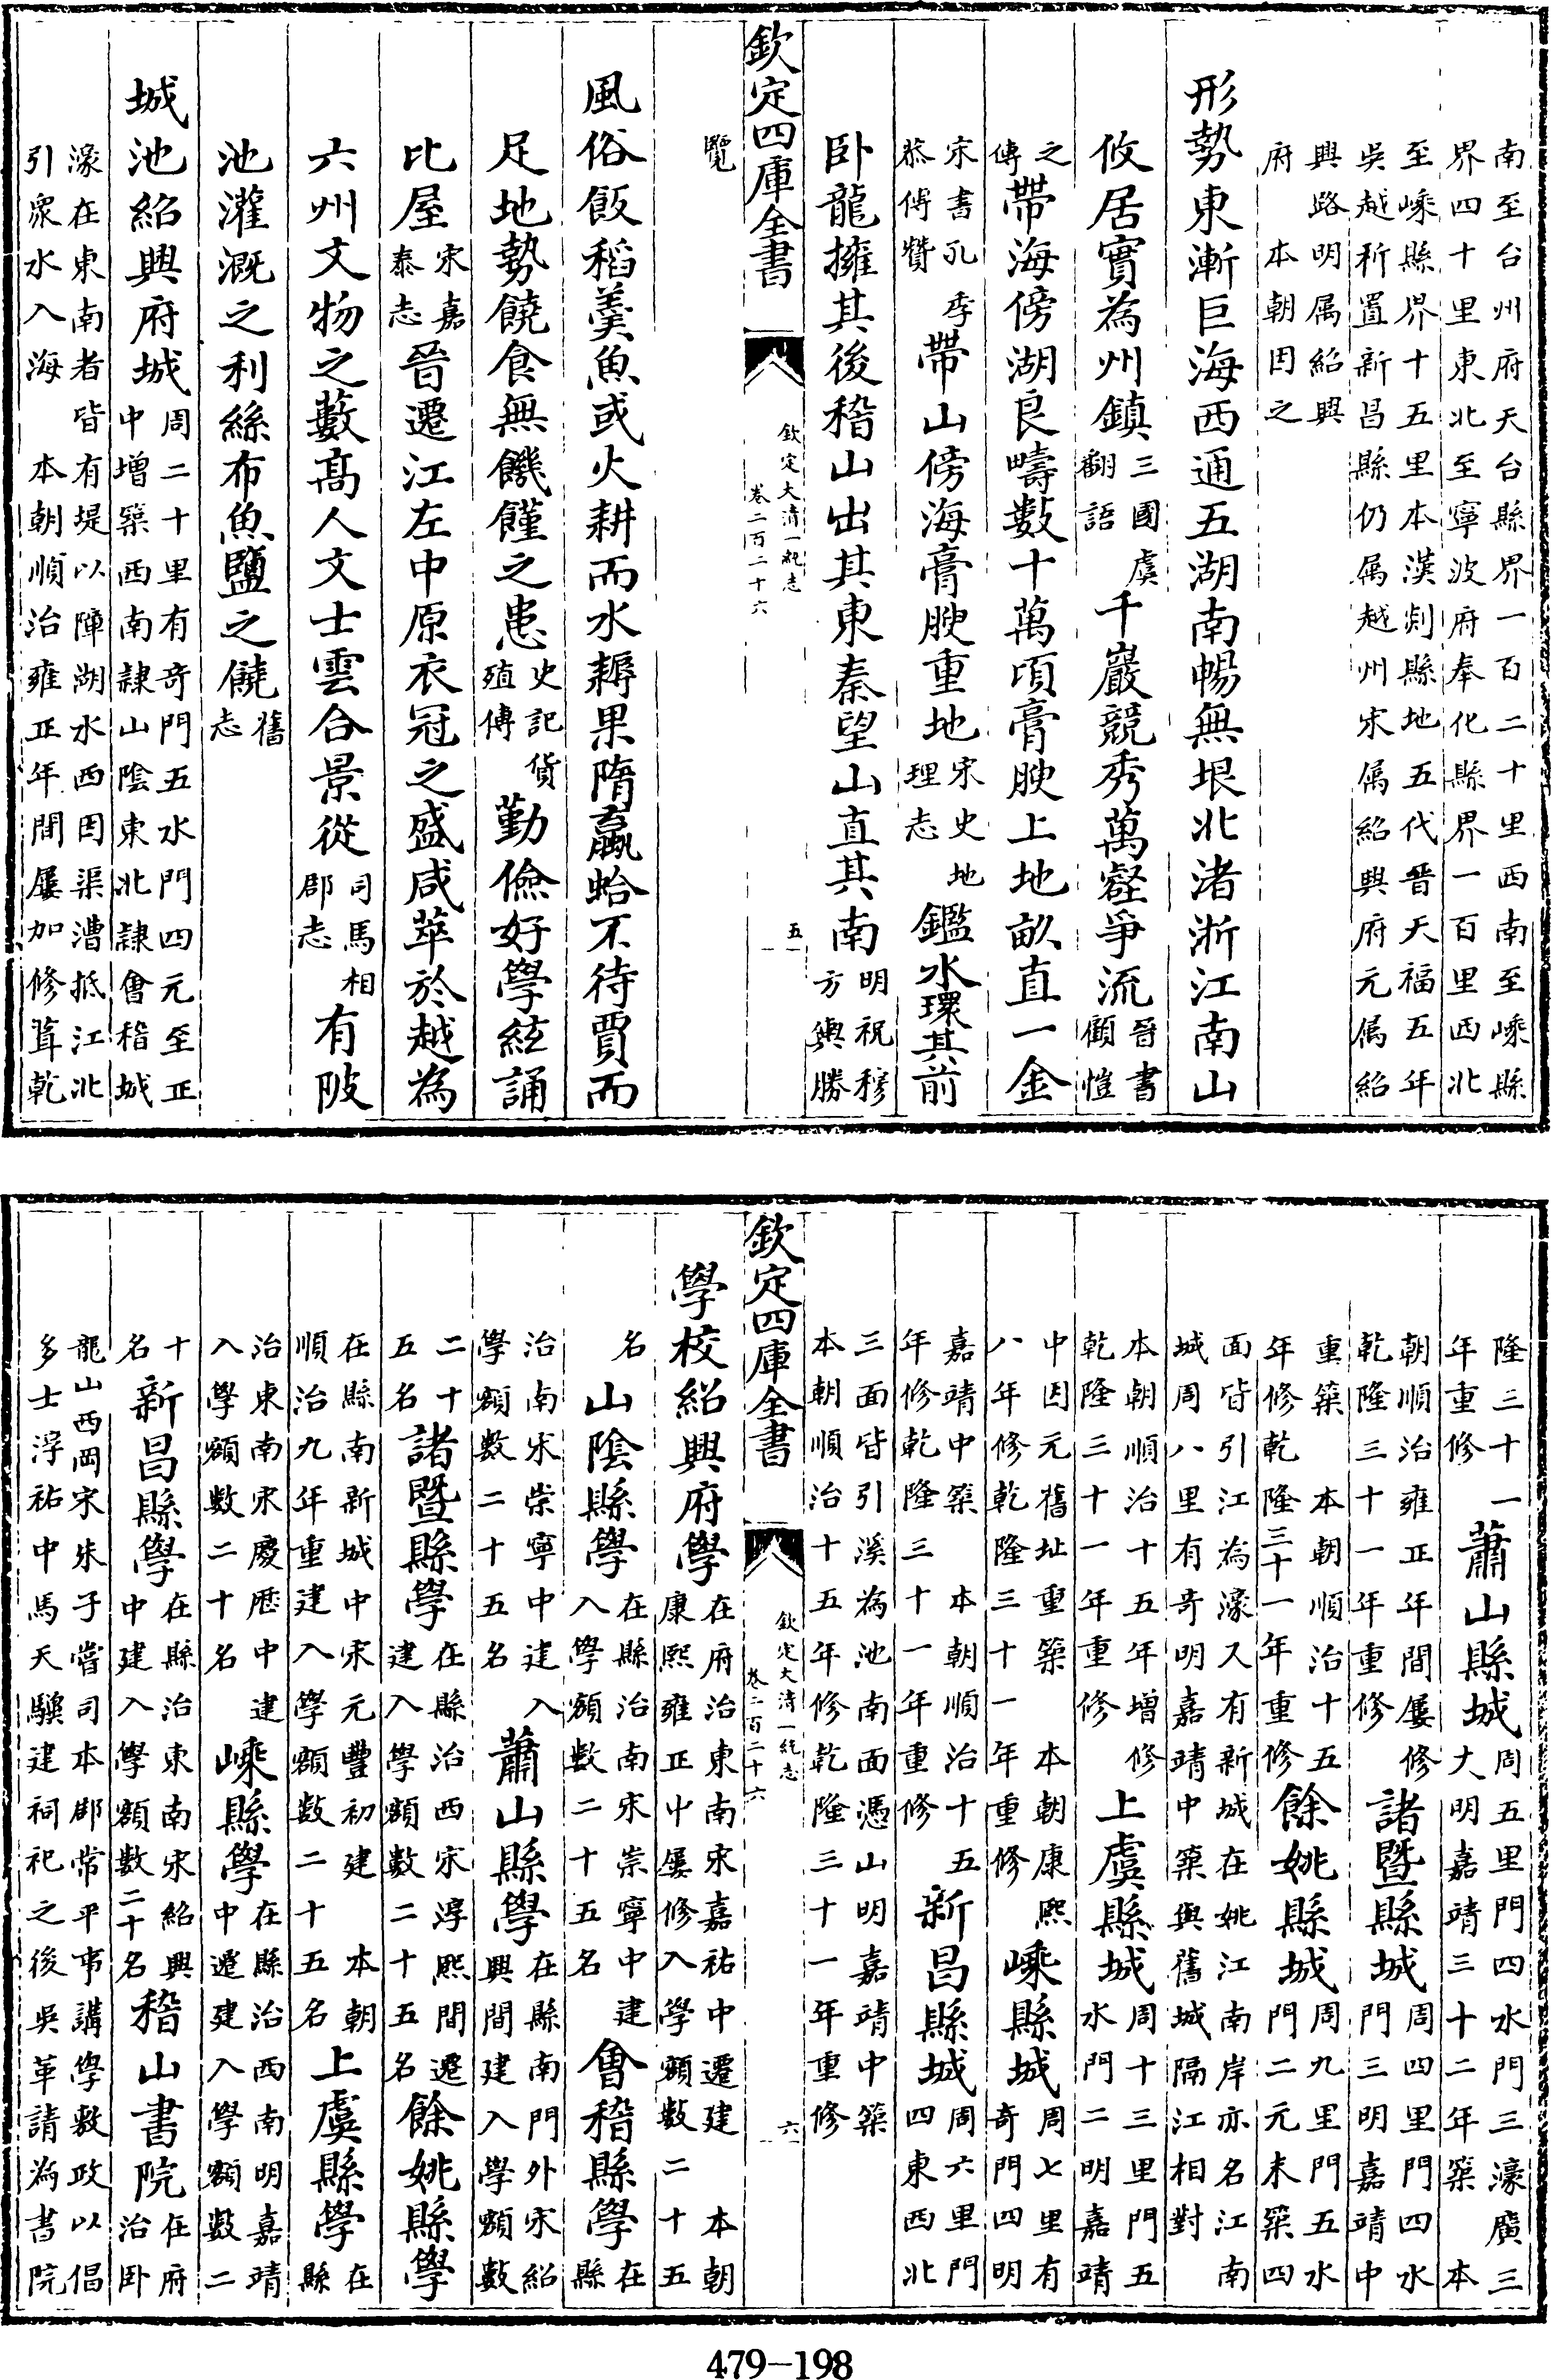 南至台州府天台縣界一百二十里西南至嵊縣界四十里東北至寧波府奉化縣界一百里西北
至嵊縣界十五里本漢剡縣地五代晉天福五年吳越析置新昌縣仍属越州宋属紹興府元属紹
興路明属紹興府 本朝因之
形勢東漸巨海西通五湖南暢無垠北渚浙江南山
攸居實為州鎮三國虞翻語千巖競秀萬壑爭流晉書顧愷
之傳帶海傍湖良疇數十萬頃膏腴上地畝直一金
宋書孔季恭傳贊帶山傍海膏腴重地宋史地理志鑑水環其前
卧龍擁其後稽山出其東秦望山直其南明祝穆方輿勝
欽定四庫全書 欽定大清一統志 卷二百二十六 五
覽
風俗飯稻羹魚或火耕而水耨果隋蠃蛤不待賈而
足地勢饒食無饑饉之患史記貨殖傳勤儉好學絃誦
比屋宋嘉泰志晉遷江左中原衣冠之盛咸萃於越為
六州文物之藪高人文士雲合景從司馬相郡志有陂
池灌溉之利絲布魚鹽之饒舊志
城池紹興府城周二十里有奇門五水門四元至正中增築西南隸山陰東北隸會稽城
濠在東南者皆有堤以障湖水西因渠漕抵江北引衆水入海 本朝順治雍正年間屢加修葺乾
隆三十一年重修蕭山縣城周五里門四水門三濠廣三丈明嘉靖三十二年築 本
朝順治雍正年間屢修乾隆三十一年重修諸暨縣城周四里門四水門三明嘉靖中
重築 本朝順治十五年修乾隆三十一年重修餘姚縣城周九里門五水門二元末築四
面皆引江為濠又有新城在姚江南岸亦名江南城周八里有奇明嘉靖中築與舊城隔江相對
本朝順治十五年增修乾隆三十一年重修上虞縣城周十三里門五水門二明嘉靖
中因元舊址重築 本朝康熙八年修乾隆三十一年重修嵊縣城周七里有奇門四明
嘉靖中築 本朝順治十五年修乾隆三十一年重修新昌縣城周六里門四東西北
三面皆引溪為池南面憑山明嘉靖中築本朝順治十五年修乾隆三十一年重修
欽定四庫全書 欽定大清一統志 卷二百二十六 六
學校紹興府學在府治東南宋嘉祐中遷建 本朝康熙雍正中屢修入學額數二十五
名山陰縣學在縣治南宋崇寧中建入學額數二十五名會稽縣學在縣
治南宋崇寧中建入學額數二十五名蕭山縣學在縣南門外宋紹興間建入學額數
二十五名諸暨縣學在縣治西宋淳熙間遷建入學額數二十五名餘姚縣學
在縣南新城中宋元豐初建 本朝順治九年重建入學額數二十五名上虞縣學在縣
治東南宋慶歷中建入學額數二十名嵊縣學在縣治西南明嘉靖中遷建入學額數二
十名新昌縣學在縣治東南宋紹興中建入學額數二十名稽山書院在府治卧
龍山西岡宋朱子嘗司本郡常平事講學敷政以倡多士淳祐中馬天驥建祠祀之後吳革請為書院
479-198